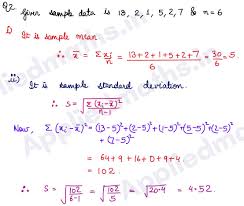 Q2. Given sample data is 13, 2, 1, 5, 2, 7 & n = 6
i) It is sample mean
∴ x̄ = Σ xi / n = 13+2+1+5+2+7 / 6 = 30/6 = 5.
ii) It is sample standard deviation.
∴ s = √(Σ (xi-x̄)² / n-1)
Now, Σ (xi-x̄)² = (13-5)²+(2-5)²+(1-5)²+(5-5)²+(2-5)²
+(7-5)²
= 64+9+16+0+9+4
= 102
∴ s = √(102 / 6-1) = √(102 / 5) = √20.4 = 4.52